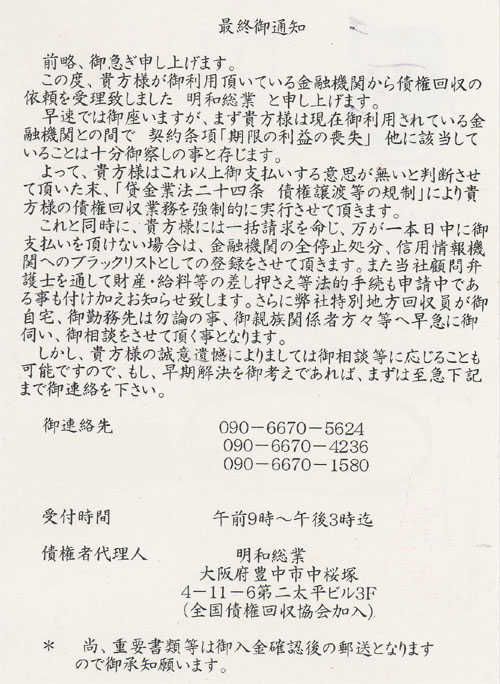 最終御通知
前略、御急ぎ申し上げます。
この度、貴方様が御利用頂いている金融機関から債権回収の
依頼を受理致しました 明和総業 と申し上げます。
早速では御座いますが、まず貴方様は現在御利用されている金
融機関との間で 契約条項「期限の利益の喪失」 他に該当して
いることは十分御察しの事と存じます。
よって、貴方様はこれ以上御支払いする意思が無いと判断させ
て頂いた末、「貸金業法二十四条 債権譲渡等の規制」により貴
方様の債権回収業務を強制的に実行させて頂きます。
これと同時に、貴方様には一括請求を命じ、万が一本日中に御
支払いを頂けない場合は、金融機関の全停止処分、信用情報機
関へのブラックリストとしての登録をさせて頂きます。また当社顧問弁
護士を通して財産・給料等の差し押さえ等法的手続も申請中であ
る事も付け加えお知らせ致します。さらに弊社特別地方回収員が御
自宅、御勤務先は勿論の事、御親族関係者方々等へ早急に御
伺い、御相談をさせて頂く事となります。
しかし、貴方様の誠意遺憾によりましては御相談等に応じることも
可能ですので、もし、早期解決を御考えであれば、まずは至急下記
まで御連絡を下さい。
御連絡先 090-6670-5624
090-6670-4236
090-6670-1580
受付時間 午前9時~午後3時迄
債権者代理人 明和総業
大阪府豊中市中桜塚
4-11-6第二太平ビル3F
(全国債権回収協会加入)
* 尚、重要書類等は御入金確認後の郵送となります
ので御承知願います。